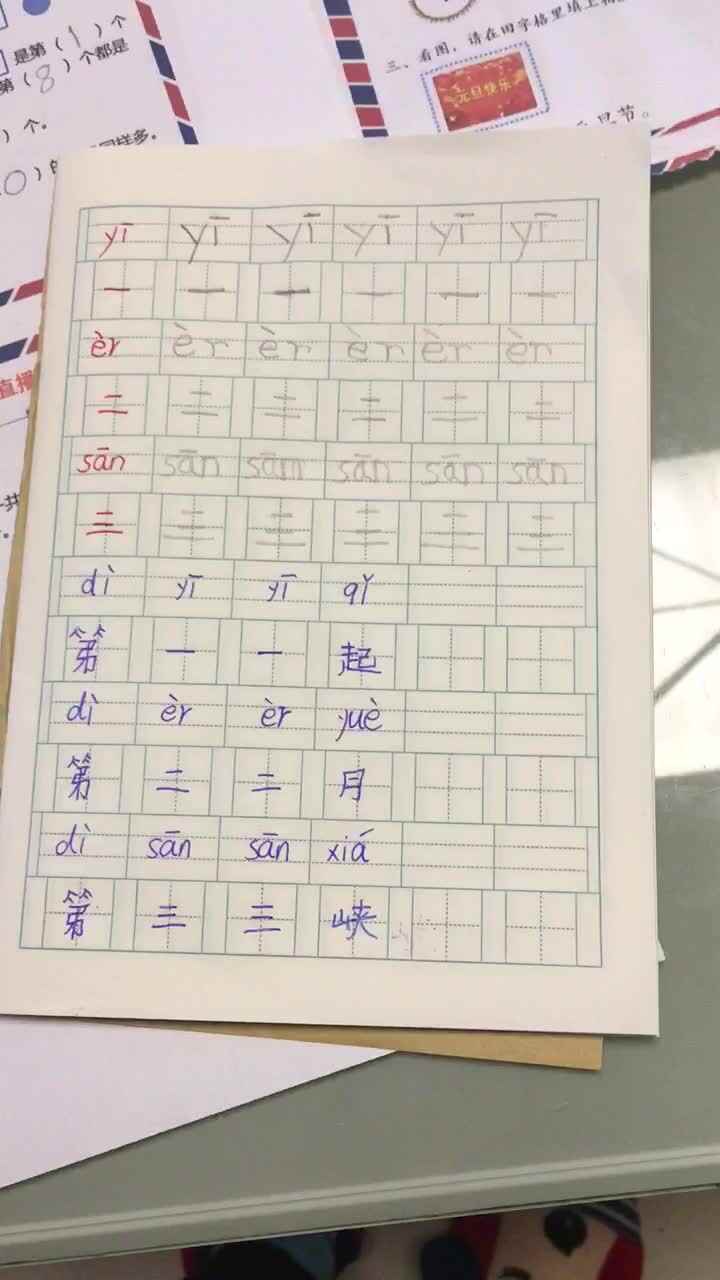 是第（1）个
第（8）个都是
）个。
同样多。
0）
三、看图，请在田字格里填上
元旦快乐
节。
直播
共
yī yī yī yī yī yī
一 一 一 一 一 一
èr èr èr èr èr èr
二 二 二 二 二 二
sān sān sān sān sān sān
三 三 三 三 三 三
dì yī yī qǐ
第 一 一 起
dì èr èr yuè
第 二 二 月
dì sān sān xiá
第 三 三 峡